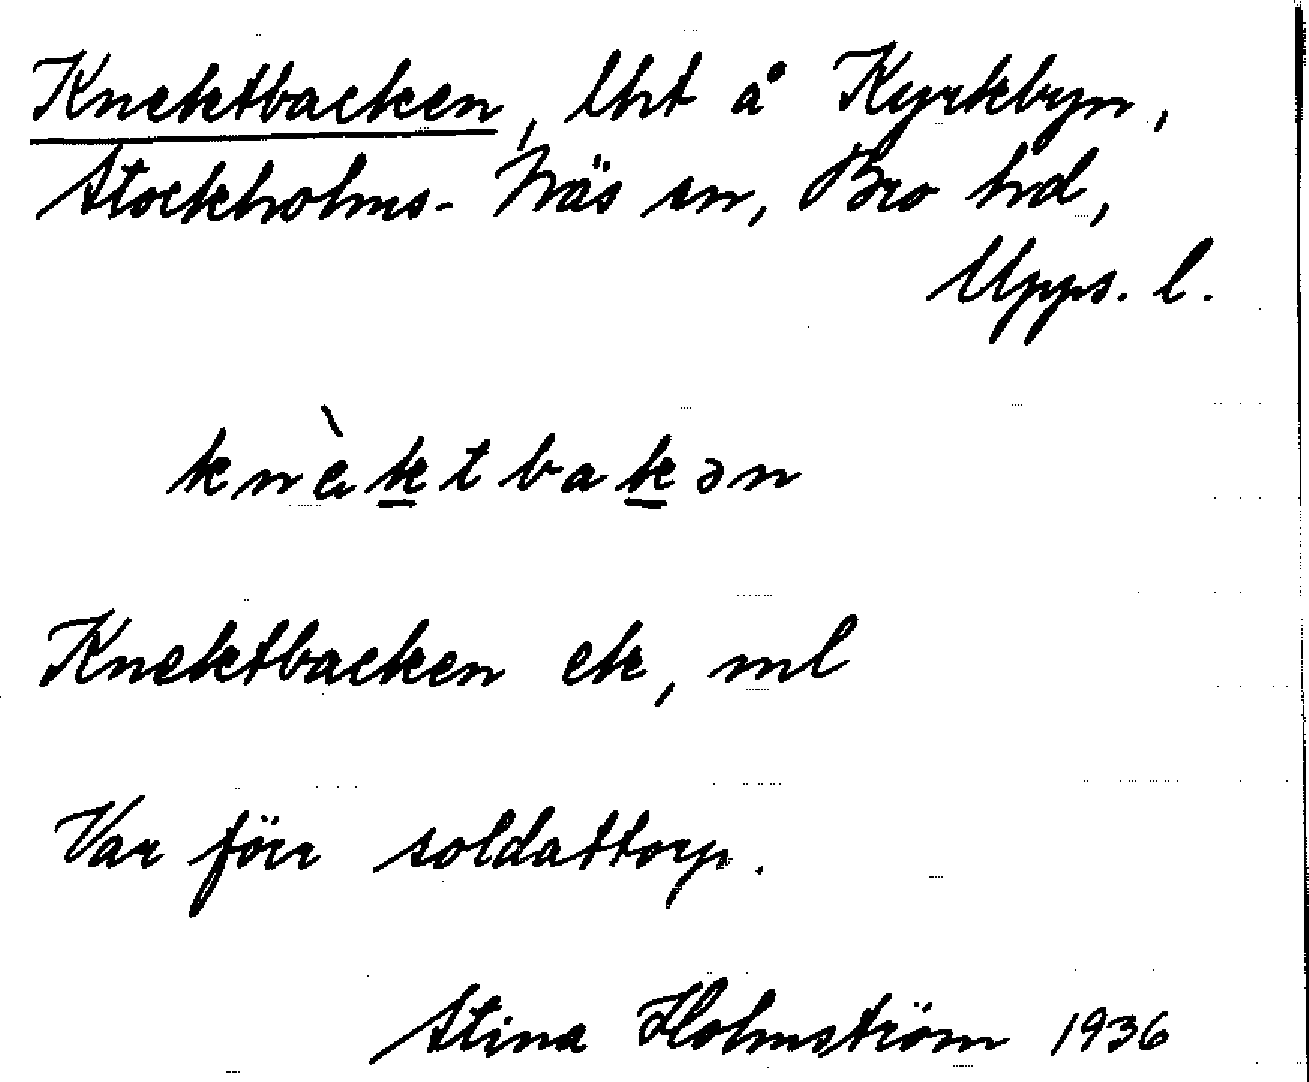 Knektbacken, lht å Kyrkbyn,
Stockholms-Näs sn, Bro hd,
Upps. l.
knὲk̲tbak̲ən
Knektbacken ek, ml
Var förr soldattorp.
Stina Holmström 1936